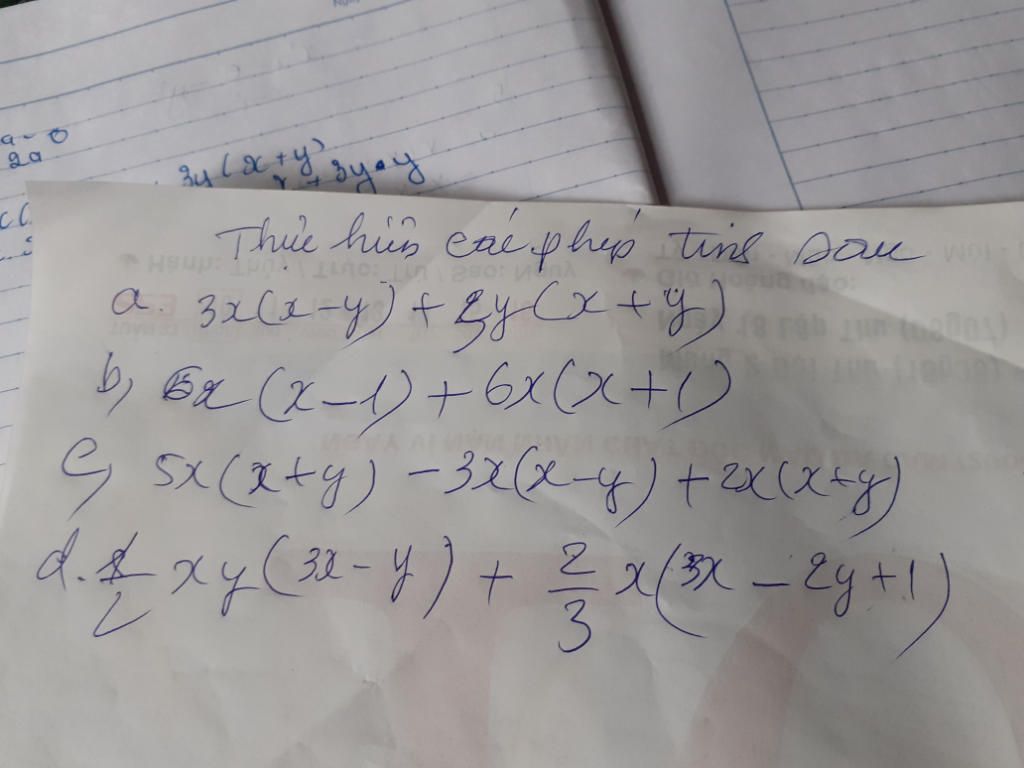 a - 0
2a
3y(x+y)
3y.y
Thực hiện các phép tính sau
a. 3x(x-y) + 3y(x+y)
b, 6x(x-1) + 6x(x+1)
c, 5x(x+y) - 3x(x-y) + 2x(x+y)
d. 1/2 xy(3x-y) + 2/3 x(3x-2y+1)